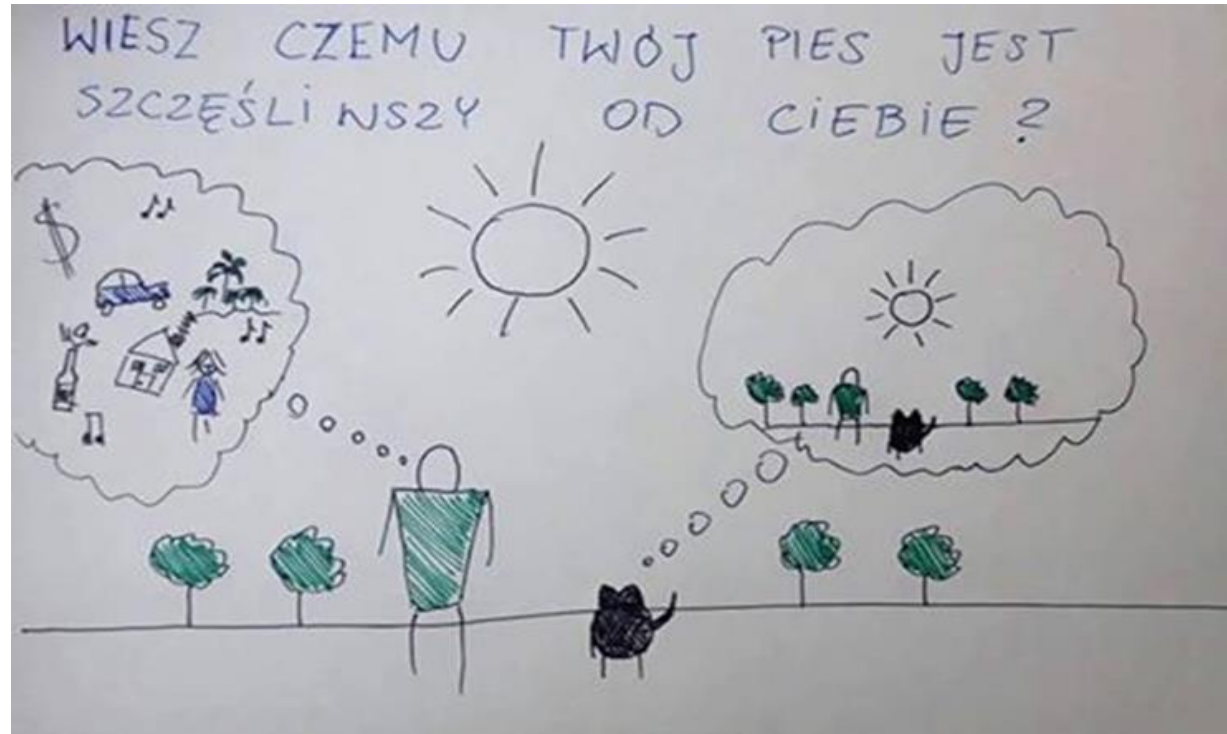 WIESZ CZEMU TWÓJ PIES JEST
SZCZĘŚLIWSZY OD CIEBIE ?
$